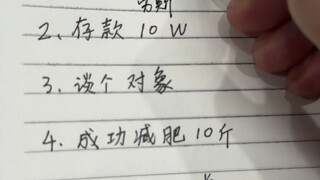 2、存款 10 W
3、谈个对象
4、成功减肥 10斤